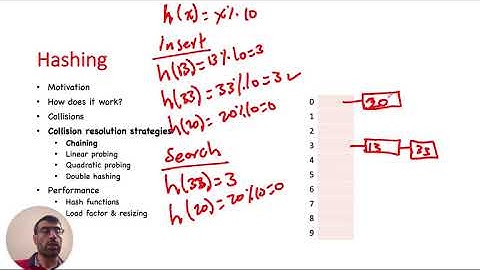 h(x) = x % 10
Hashing
• Motivation
• How does it work?
• Collisions
• Collision resolution strategies
• Chaining
• Linear probing
• Quadratic probing
• Double hashing
• Performance
• Hash functions
• Load factor & resizing
insert
h(13) = 13 % 10 = 3
h(33) = 33 % 10 = 3 ✓
h(20) = 20 % 10 = 0
Search
h(33) = 3
h(20) = 20 % 10 = 0
0 20
1
2
3 13 33
4
5
6
7
8
9